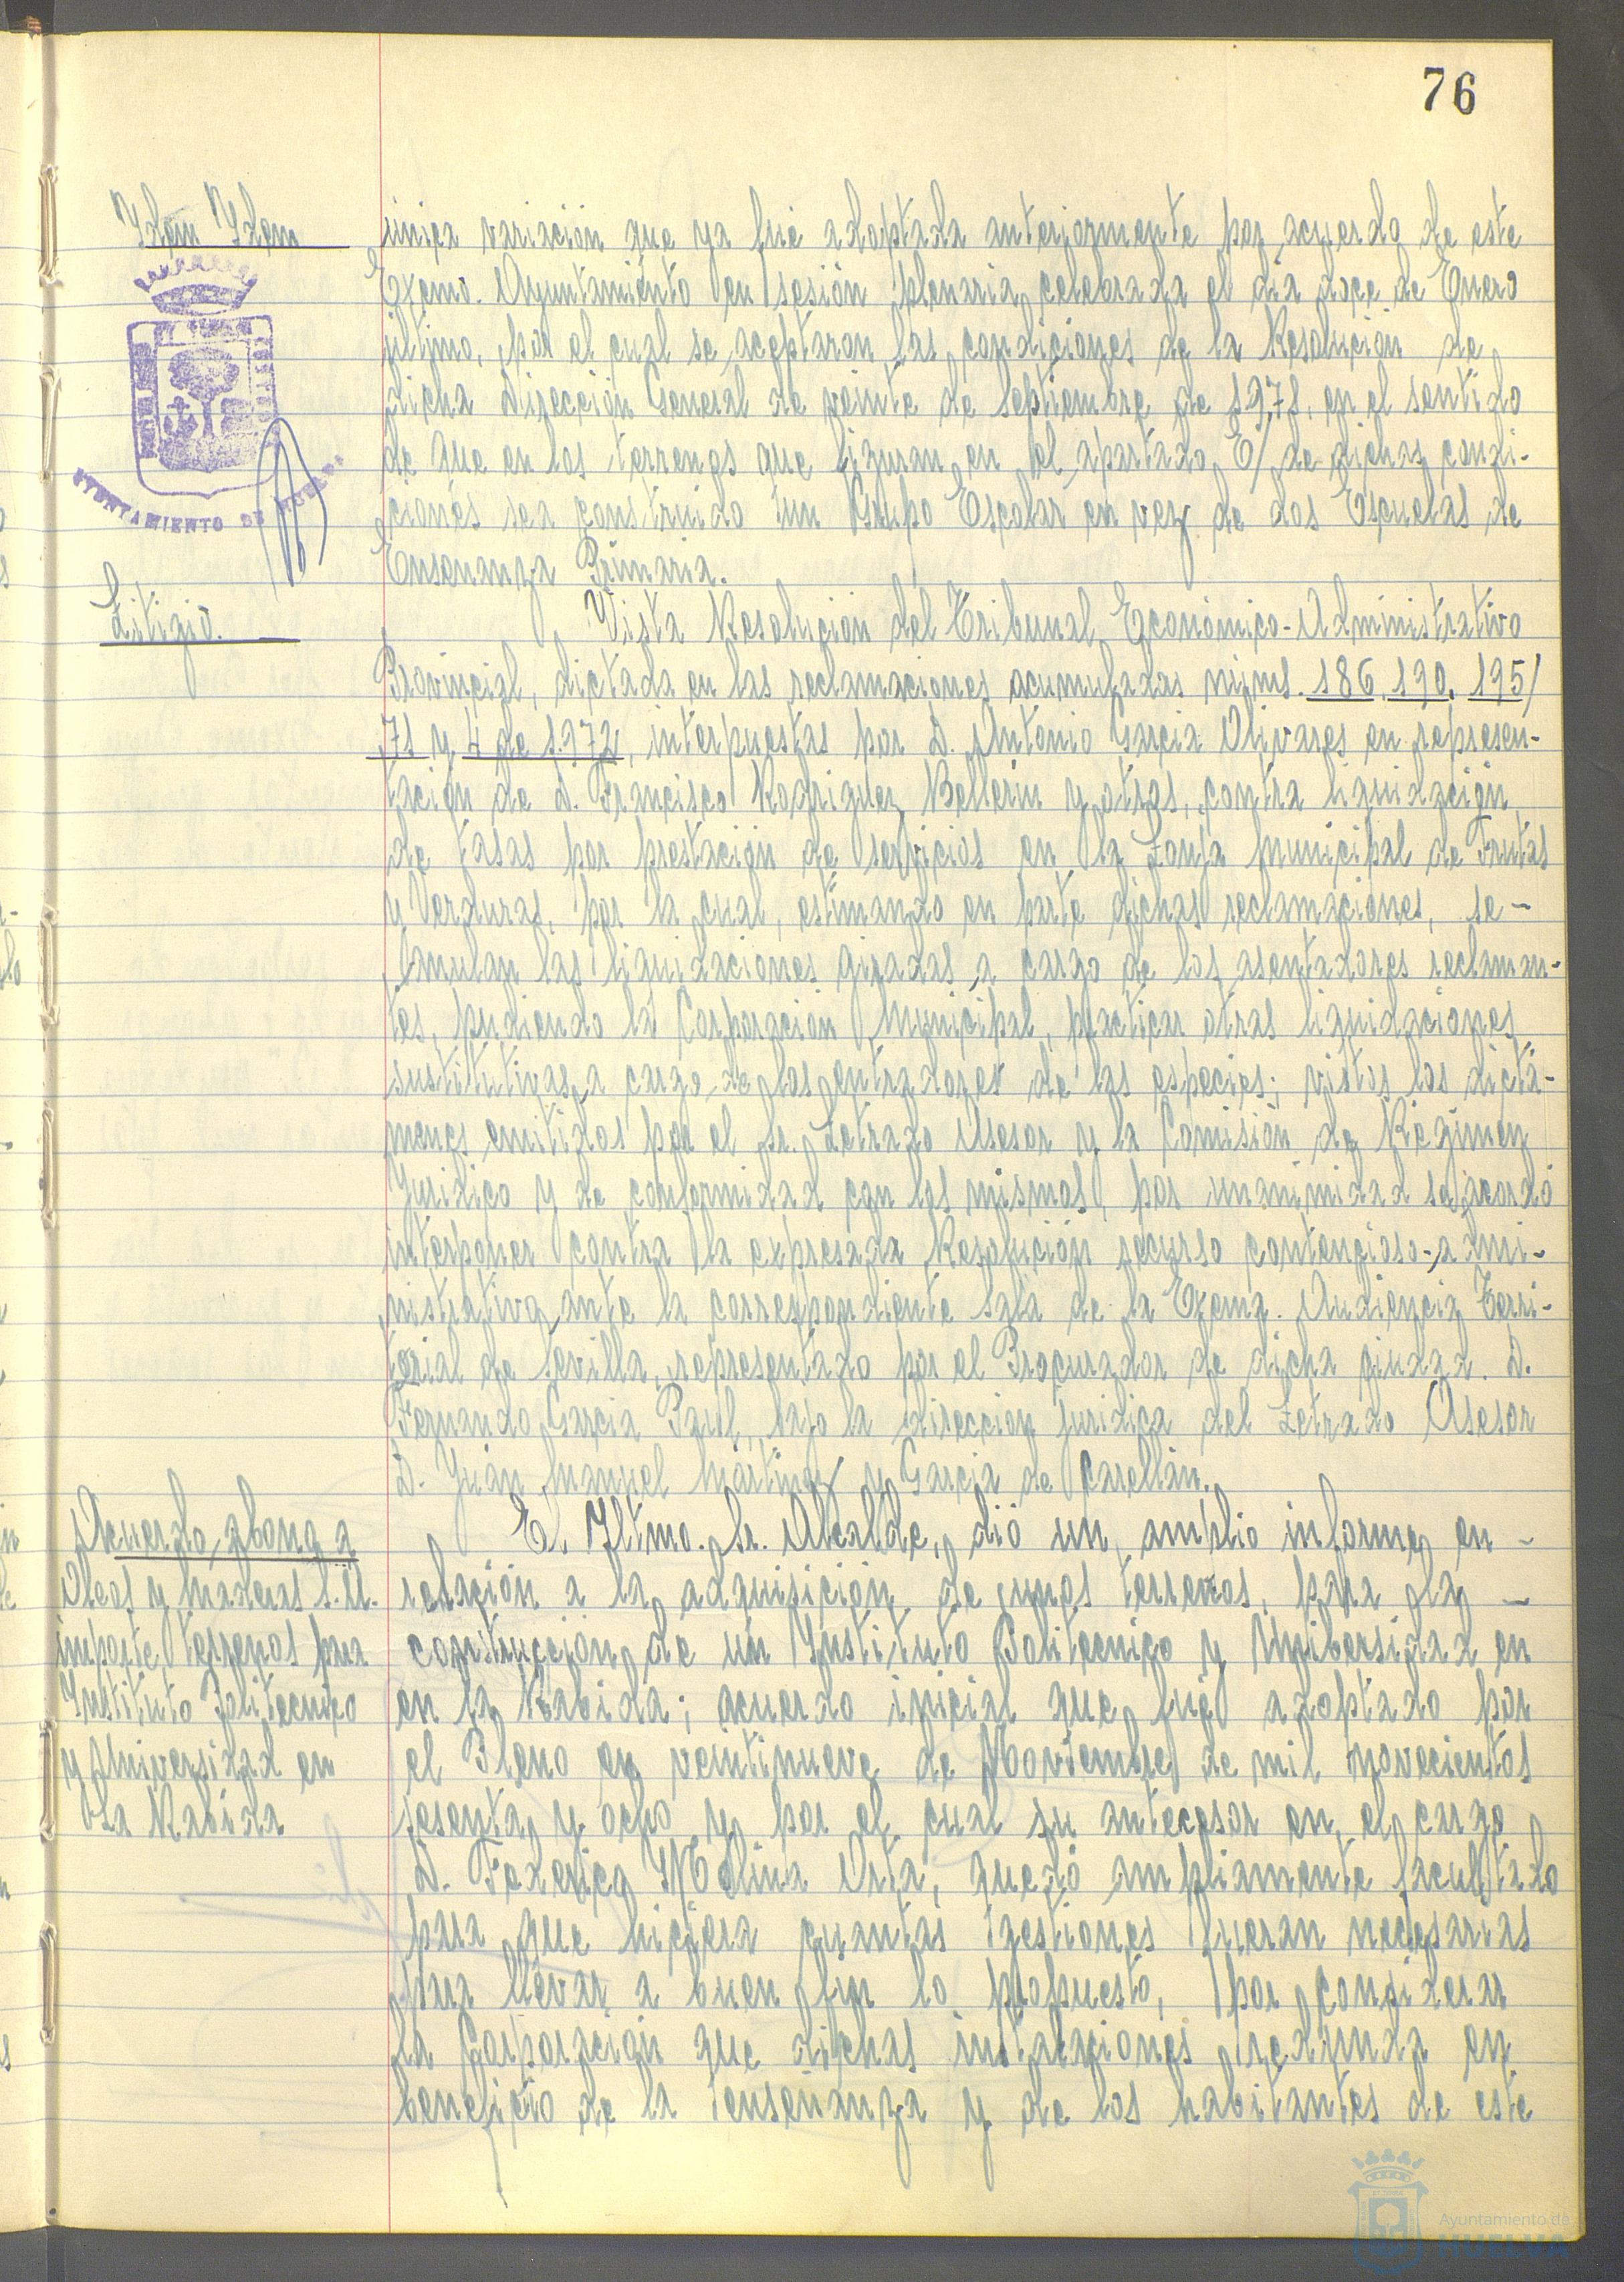 76
Ydem Ydem
única variación que ya fué adoptada anteriormente por acuerdo de este
Excmo. Ayuntamiento en sesión plenaria celebrada el día doce de Enero
último, por el cual se aceptaron las condiciones de la Resolución de
dicha Dirección General de veinte de Septiembre de 1.971, en el sentido
de que en los terrenos que figuran en el apartado E/ de dichas condi-
ciones sea construido un Grupo Escolar en vez de dos Escuelas de
Enseñanza Primaria.
AYUNTAMIENTO DE HUELVA
Litigio.
Vista Resolución del Tribunal Económico-Administrativo
Provincial, dictada en las reclamaciones acumuladas núms. 186, 190, 195/
71 y 4 de 1.972, interpuestas por D. Antonio García Olivares en represen-
tación de D. Francisco Rodríguez Bellerín y otros, contra liquidación
de tasas por prestación de servicios en la Lonja Municipal de Frutas
y Verduras, por la cual, estimando en parte dichas reclamaciones, se-
anulan las liquidaciones giradas a cargo de los asentadores reclaman-
tes, pudiendo la Corporación Municipal, practicar otras liquidaciones
sustitutivas a cargo de los entradores de las especies; vistos los dictá-
menes emitidos por el Sr. Letrado Asesor y la Comisión de Régimen
Jurídico y de conformidad con los mismos, por unanimidad se acordó
interponer contra la expresada Resolución recurso contencioso-admi-
nistrativo ante la correspondiente Sala de la Excma. Audiencia Terri-
torial de Sevilla, representado por el Procurador de dicha ciudad. D.
Fernando García Paul, bajo la dirección jurídica del Letrado Asesor
D. Juan Manuel Martínez y García de Carellán.
Acuerdo abono a
Oleos y Maderas S.A.
importe terrenos para
Instituto Politecnico
y Universidad en
La Rabida
El Iltmo. Sr. Alcalde, dió un amplio informe en -
relación a la adquisición de unos terrenos, para la -
construcción de un Instituto Politecnico y Universidad en
en la Rabida; acuerdo inicial que fué adoptado por
el Pleno en veintinueve de Noviembre de mil novecientos
sesenta y ocho y por el cual su antecesor en el cargo
D. Federico Molina Orta, quedó ampliamente facultado
para que hiciera cuantas gestiones fueran necesarias
para llevar a buen fin lo propuesto, por considerar
la Corporación que dichas instalaciones redunda en
beneficio de la enseñanza y de los habitantes de este
Ayuntamiento de
HUELVA